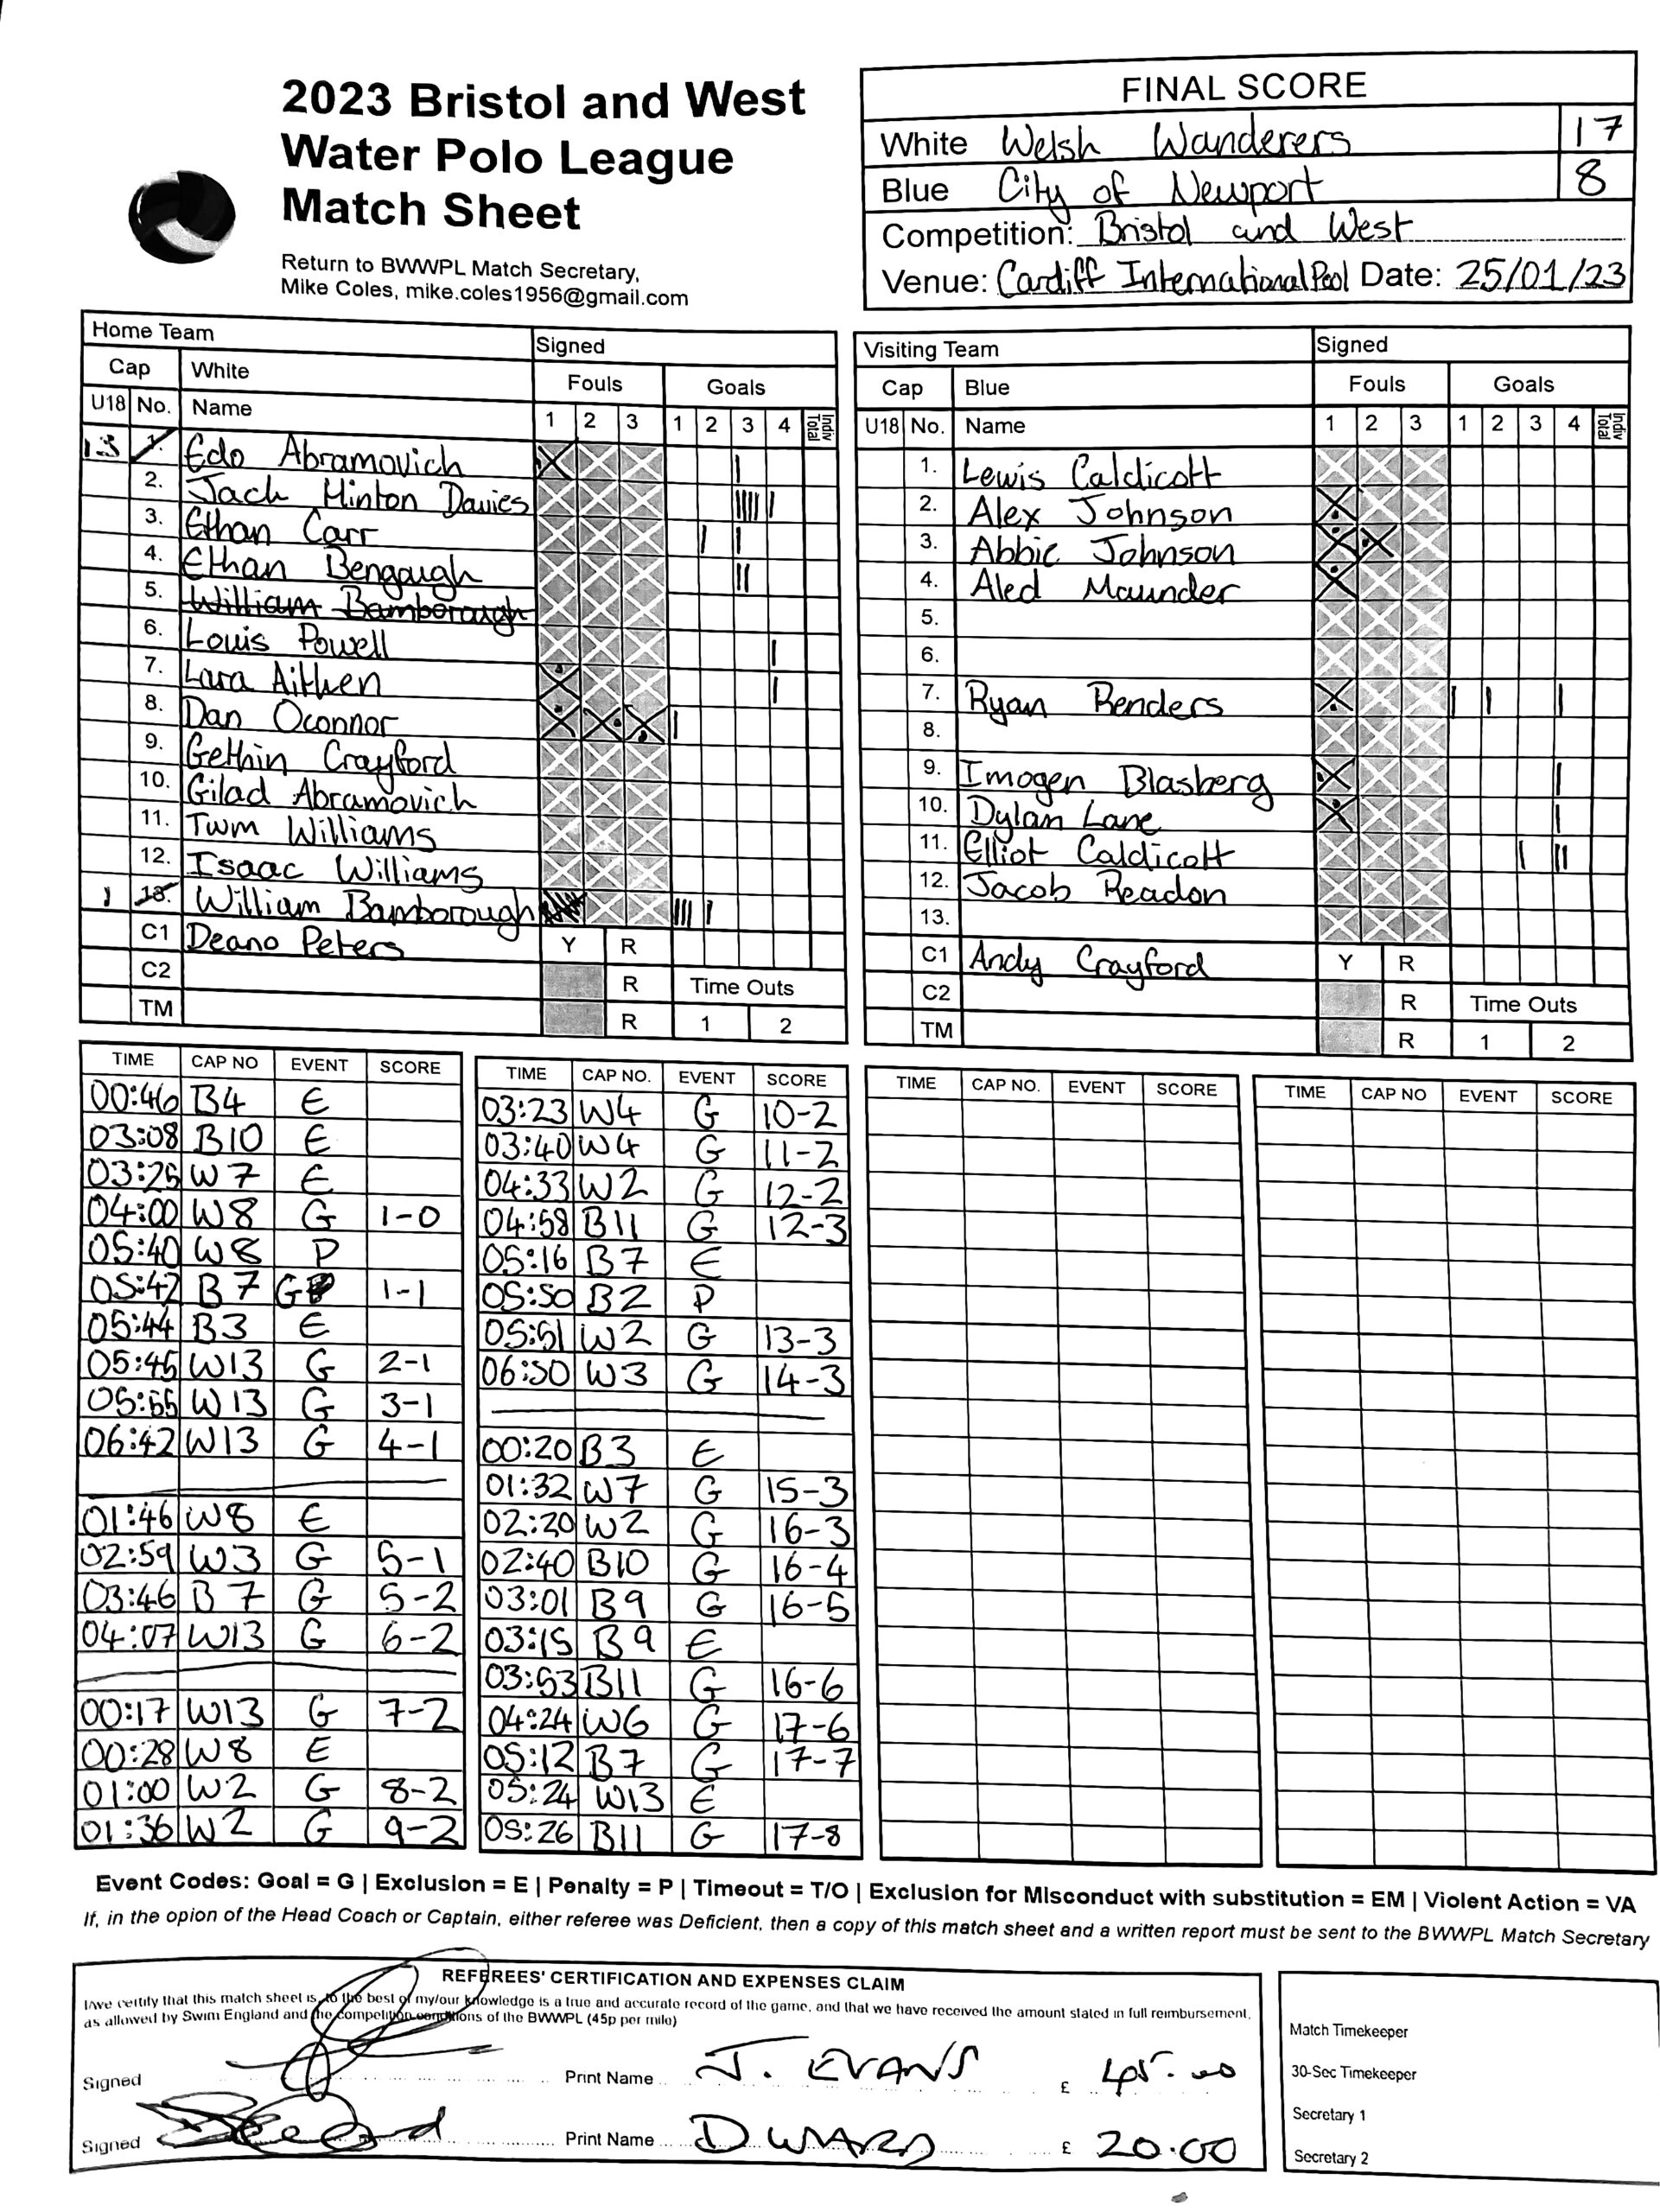 2023 Bristol and West
Water Polo League
Match Sheet
Return to BWWPL Match Secretary,
Mike Coles, mike.coles1956@gmail.com
FINAL SCORE
White Welsh Wanderers 17
Blue City of Newport 8
Competition: Bristol and West
Venue: Cardiff International Pool Date: 25/01/23
Home Team Signed
Cap White Fouls Goals
U18 No. Name 1 2 3 1 2 3 4 Indiv Total
13 1. Edo Abramovich
2. Jack Hinton Davies
3. Ethan Carr
4. Ethan Bengough
5. William Bamborough
6. Louis Powell
7. Lara Aitken
8. Dan Oconnor
9. Gethin Crayford
10. Gilad Abramovich
11. Twm Williams
12. Isaac Williams
1 13. William Bamborough
C1 Deano Peters Y R
C2 R Time Outs
TM R 1 2
Visiting Team Signed
Cap Blue Fouls Goals
U18 No. Name 1 2 3 1 2 3 4 Indiv Total
1. Lewis Caldicott
2. Alex Johnson
3. Abbie Johnson
4. Aled Maunder
5.
6.
7. Ryan Renders
8.
9. Imogen Blasberg
10. Dylan Lane
11. Elliot Caldicott
12. Jacob Readon
13.
C1 Andy Crayford Y R
C2 R Time Outs
TM R 1 2
TIME CAP NO EVENT SCORE
00:46 B4 E
03:08 B10 E
03:25 W7 E
04:00 W8 G 1-0
05:40 W8 P
05:42 B7 G 1-1
05:44 B3 E
05:45 W13 G 2-1
05:55 W13 G 3-1
06:42 W13 G 4-1
01:46 W8 E
02:59 W3 G 5-1
03:46 B7 G 5-2
04:07 W13 G 6-2
00:17 W13 G 7-2
00:28 W8 E
01:00 W2 G 8-2
01:36 W2 G 9-2
TIME CAP NO. EVENT SCORE
03:23 W4 G 10-2
03:40 W4 G 11-2
04:33 W2 G 12-2
04:58 B11 G 12-3
05:16 B7 E
05:50 B2 P
05:51 W2 G 13-3
06:50 W3 G 14-3
00:20 B3 E
01:32 W7 G 15-3
02:20 W2 G 16-3
02:40 B10 G 16-4
03:01 B9 G 16-5
03:15 B9 E
03:53 B11 G 16-6
04:24 W6 G 17-6
05:12 B7 G 17-7
05:24 W13 E
05:26 B11 G 17-8
TIME CAP NO. EVENT SCORE
TIME CAP NO EVENT SCORE
Event Codes: Goal = G | Exclusion = E | Penalty = P | Timeout = T/O | Exclusion for Misconduct with substitution = EM | Violent Action = VA
If, in the opion of the Head Coach or Captain, either referee was Deficient, then a copy of this match sheet and a written report must be sent to the BWWPL Match Secretary
REFEREES' CERTIFICATION AND EXPENSES CLAIM
I/we certify that this match sheet is, to the best of my/our knowledge is a true and accurate record of the game, and that we have received the amount stated in full reimbursement,
as allowed by Swim England and the competition conditions of the BWWPL (45p per mile)
Signed Print Name J. EVANS £ 45.00
Signed Print Name D WARD £ 20.00
Match Timekeeper
30-Sec Timekeeper
Secretary 1
Secretary 2